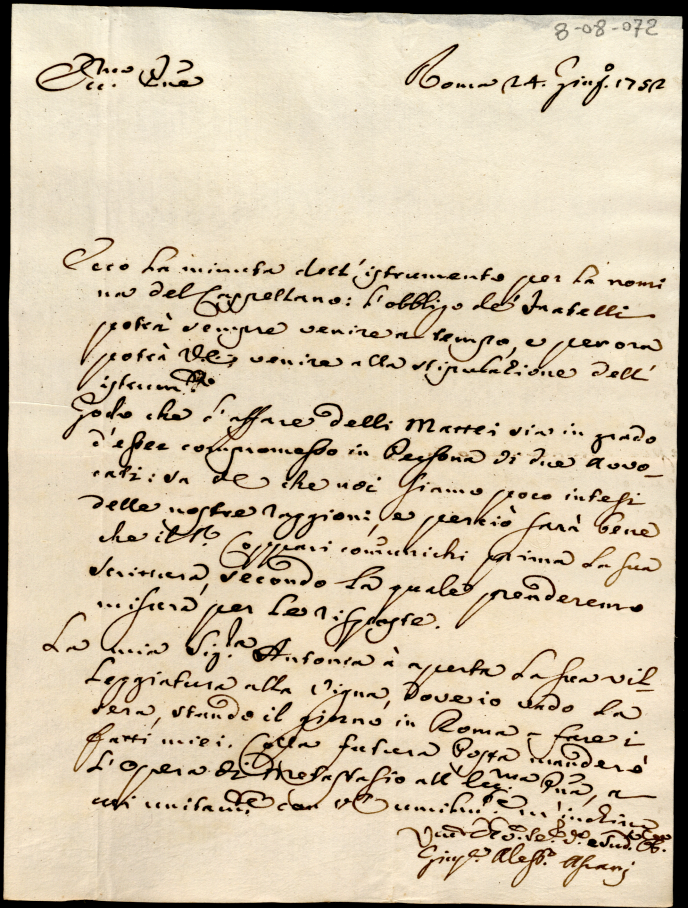 8-08-072
Roma 24. Giug.º 1752
Ecco la minuta dell'istrumento per la nomi
na del Cappellano: l'obbligo de' Fratelli
potrà sempre venire a tempo, e per ora
potrà venire alla stipulazione dell'
istrum.to
Godo che l'affare delli Mattei sia in grado
d'esser compromesso in Persona di due Avvo-
cati: sa che noi siamo poco intesi
delle nostre raggioni, e perciò sarà bene
che il Sr. Coppari comunichi prima la sua
scrittura, secondo la quale prenderemo
misura per le risposte.
La mia Sig.ra Antonia à aperta la sua vil-
leggiatura alla Vigna, dove io vado la
sera, stando il giorno in Roma a fare i
fatti miei. Colla futura Posta manderò
l'Opera di Metastasio all' a
cui unitam.te con
Aless.